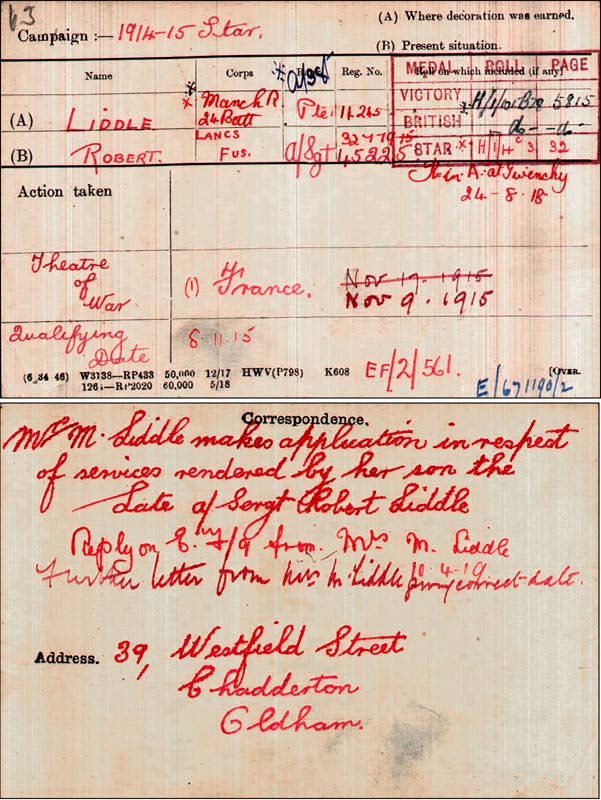 63
Campaign :— 1914-15 Star.
(A) Where decoration was earned.
(B) Present situation.
Name Corps Reg. No. Roll on which included (if any)
MEDAL ROLL PAGE
VICTORY 5815
BRITISH do— —do—
STAR H 3 32
(A) LIDDLE Manch R 24 Batt Pte 11245
(B) ROBERT. LANCS FUS. A/Sgt 45225
K. in A. at Givenchy
24-8-18
Action taken
Theatre of War (1) France. Nov 19. 1915
Nov 9. 1915
Qualifying Date 8.11.15
(6 34 46) W3138—RP433 50,000 12/17 HWV(P798) K608
126 —RP2020 60,000 5/18
EF/2/561.
[OVER.
E/671190/2
Correspondence.
Mrs M. Liddle makes application in respect
of services rendered by her son the
Late a/Sergt Robert Liddle
Reply on from Mrs M. Liddle
Further letter from Mrs M. Liddle giving correct date.
Address. 39, Westfield Street
Chadderton
Oldham.